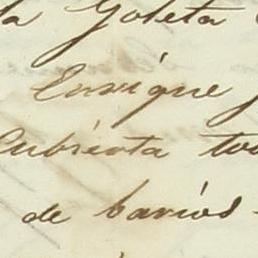 la Goleta
Enrique
Cubierta
de barios